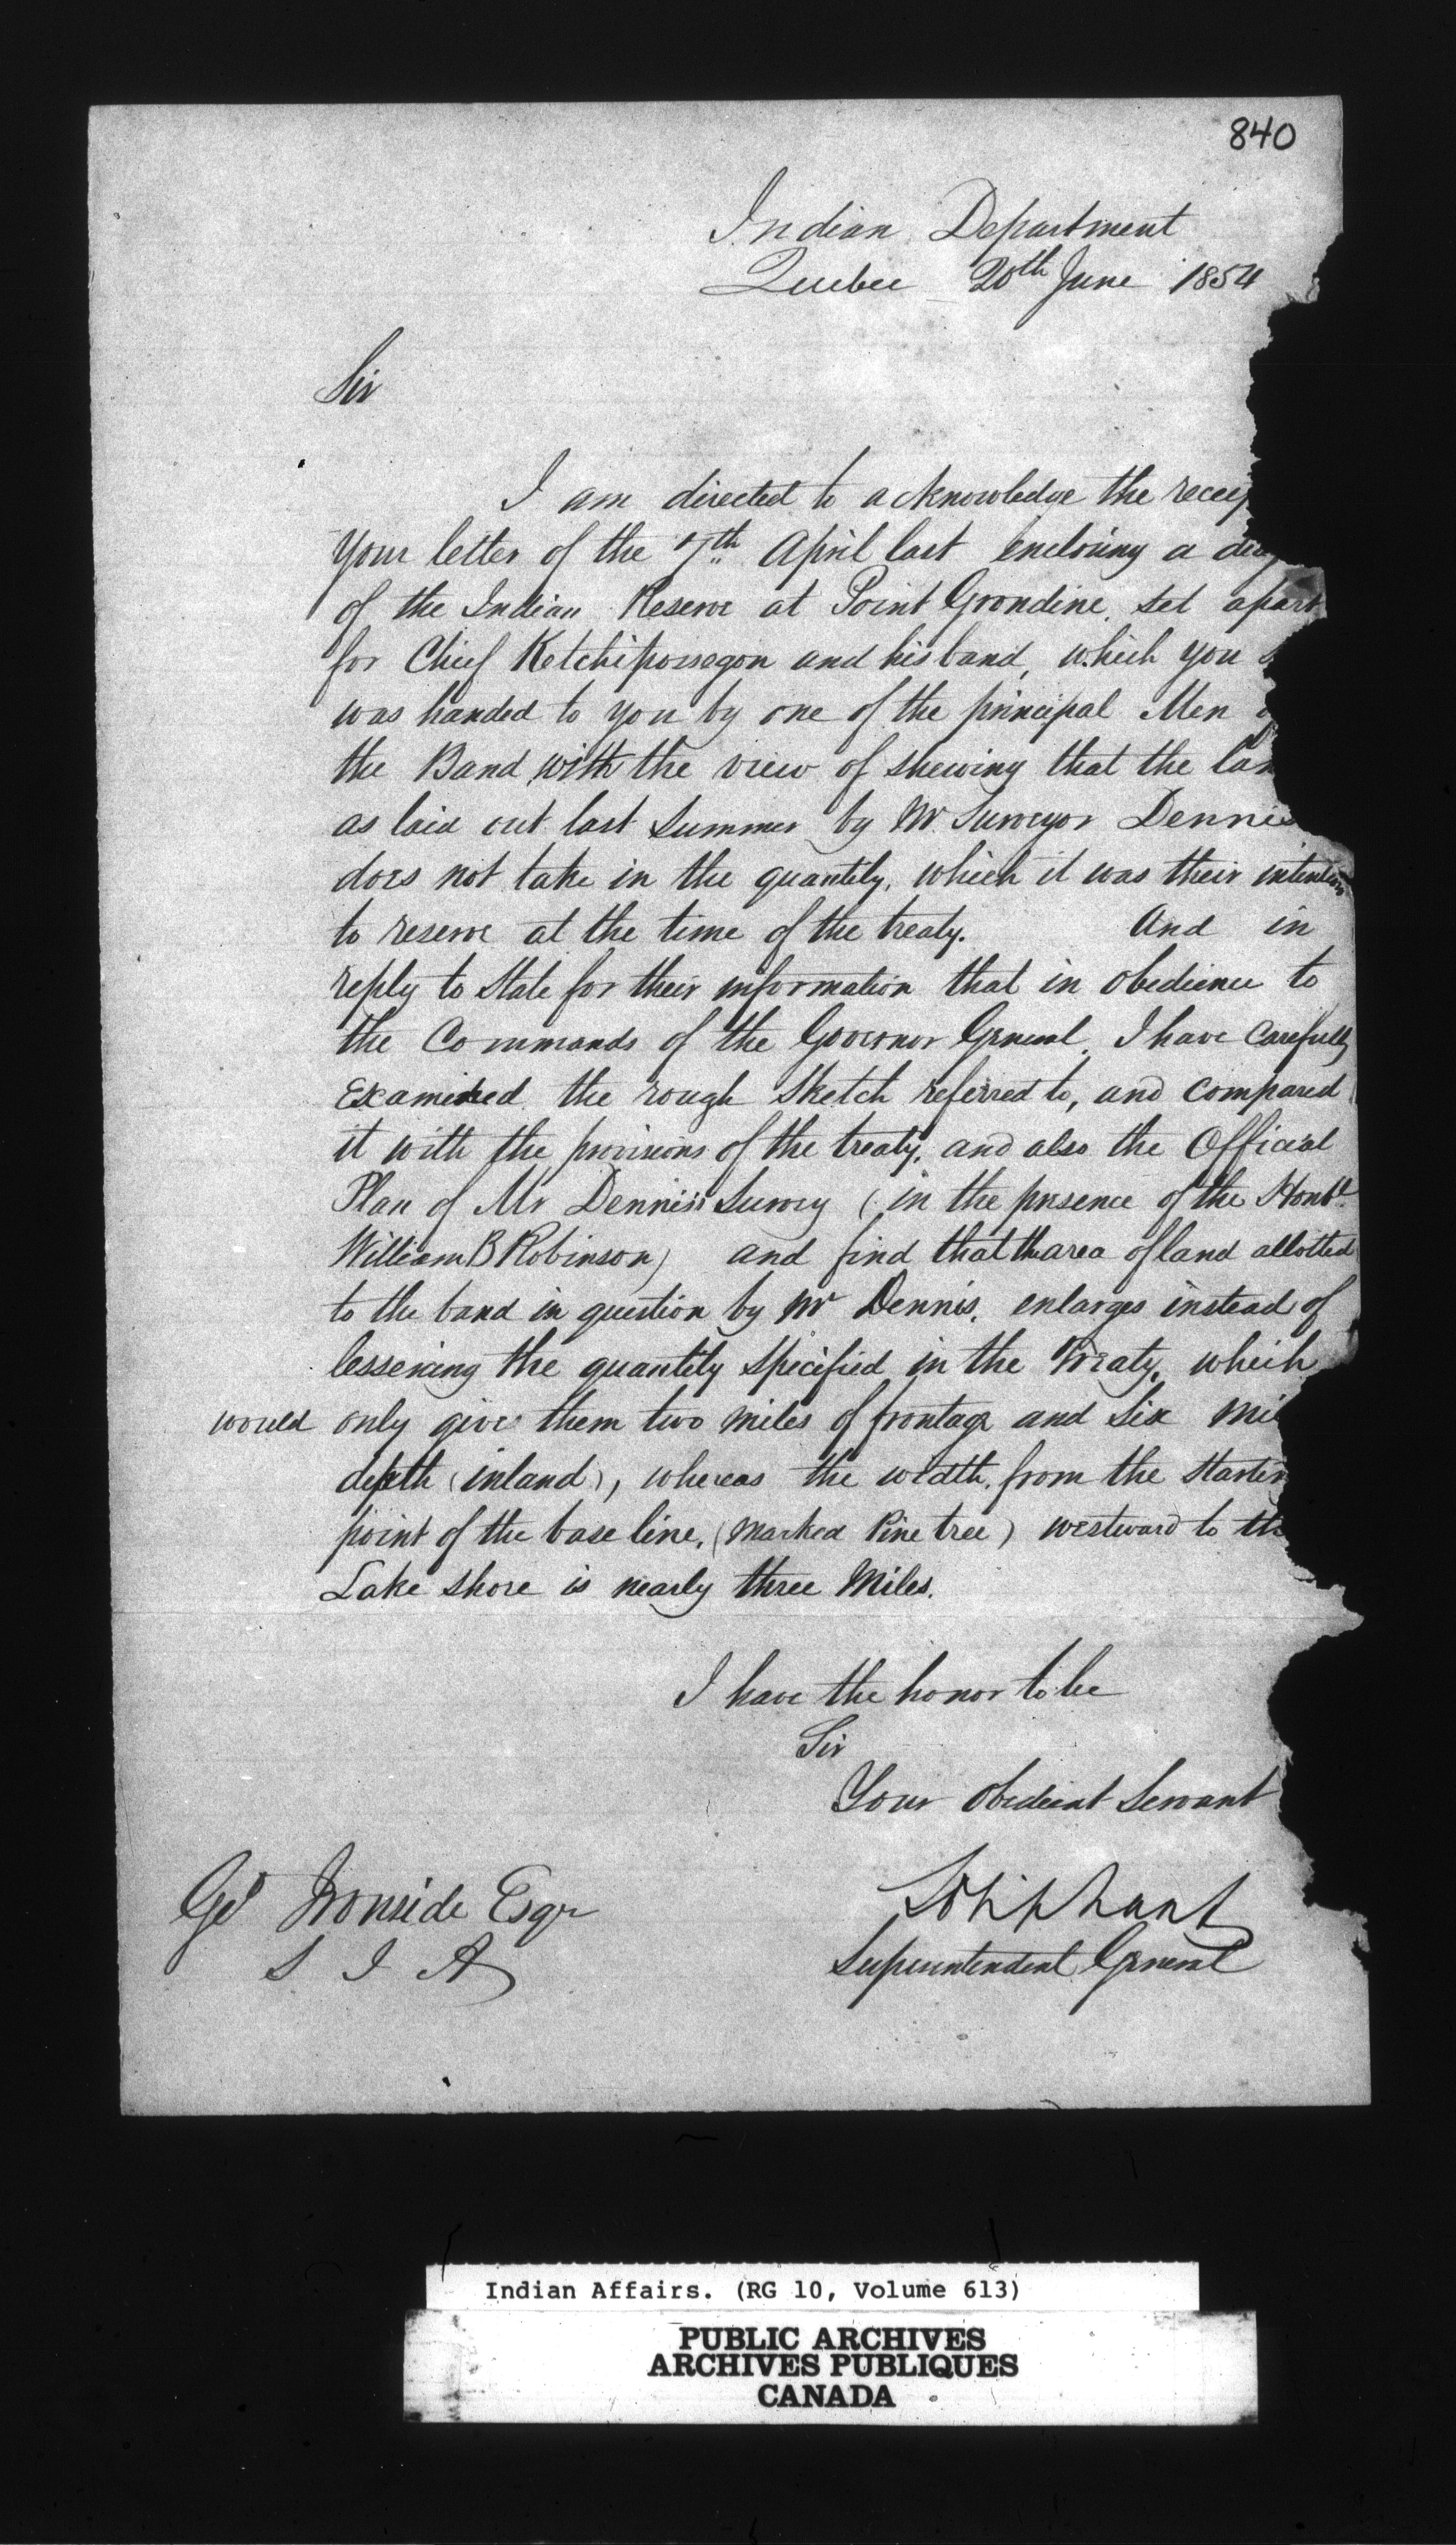 840
Indian Department
Quebec 20th June 1854
Sir
I am directed to acknowledge the
Your letter of the 7th April last enclosing a
of the Indian Reserve at Point Grondine, set apart
for Chief Ketchipossegon and his band, which you
was handed to you by one of the principal Men
the Band, with the view of shewing that the
as laid out last Summer by Mr. Surveyor Dennis
does not take in the quantity, which it was their intention
to reserve at the time of the treaty. And in
reply to State for their information that in obedience to
the Commands of the Governor General, I have carefully
Examined the rough Sketch referred to, and compared
it with the provisions of the treaty, and also the Official
Plan of Mr Dennis's Survey (in the presence of the Honble
William B Robinson) and find that the area of land allotted
to the band in question by Mr Dennis, enlarges instead of
lessening the quantity specified in the Treaty, which
would only give them two miles of frontage and Six
depth (inland), whereas the width, from the
point of the base line, (marked Pine tree) westward to
Lake shore is nearly three Miles.
I have the honor to be
Sir
Your Obedient Servant
Geo Ironside Esqr
S I A
L Oliphant
Superintendent General
Indian Affairs. (RG 10, Volume 613)
PUBLIC ARCHIVES
ARCHIVES PUBLIQUES
CANADA